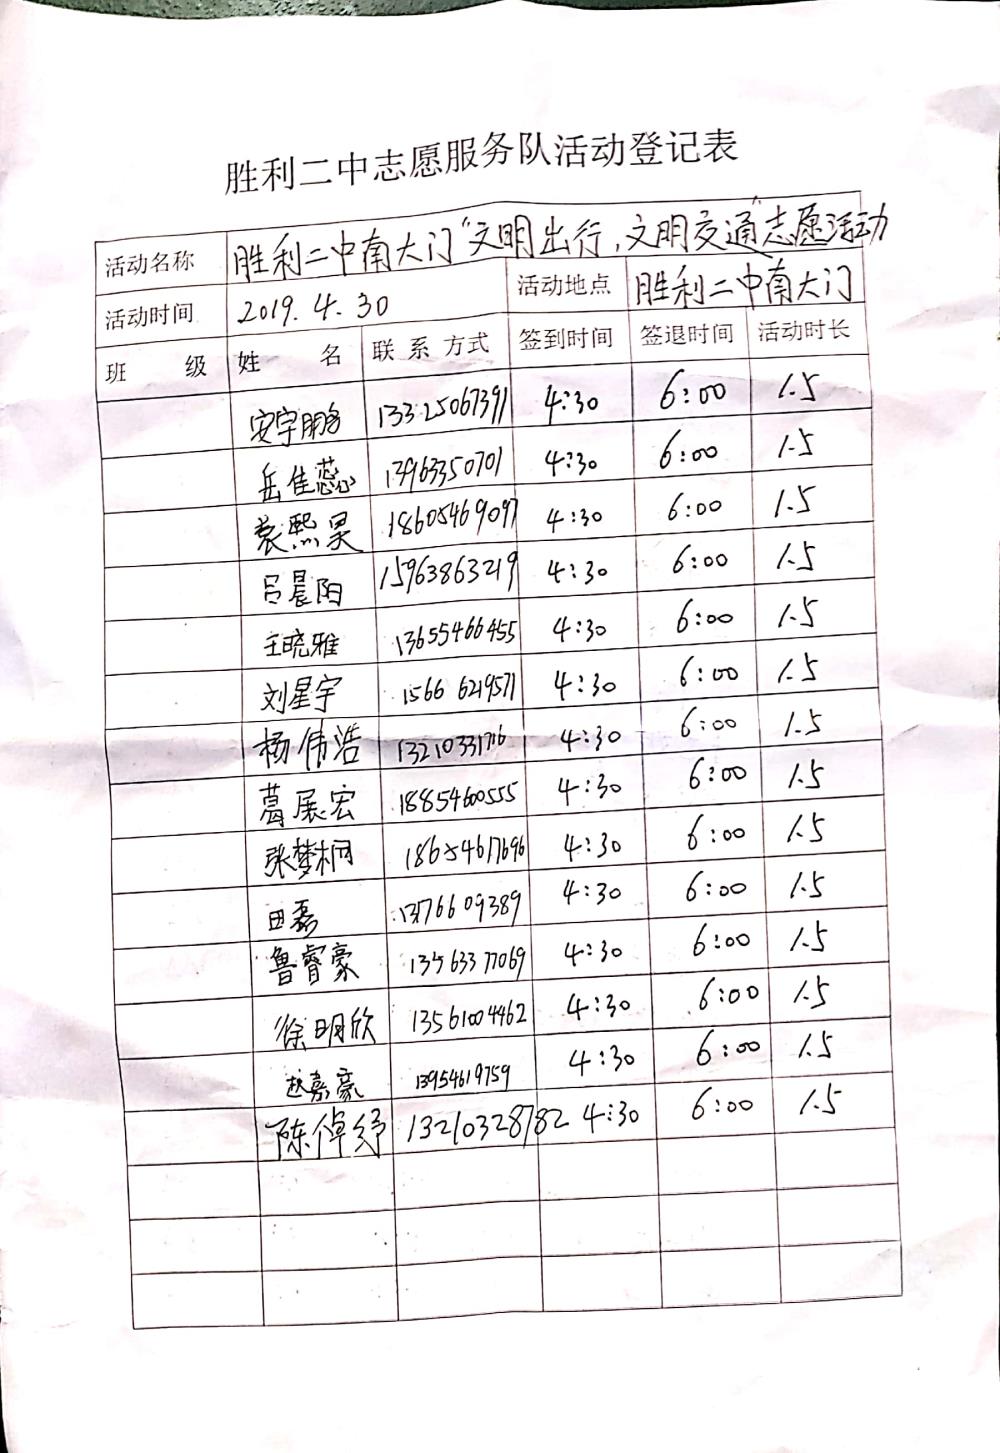 胜利二中志愿服务队活动登记表
活动名称 胜利二中南大门“文明出行,文明交通”志愿活动
活动时间 2019.4.30 活动地点 胜利二中南大门
班 级 姓 名 联系方式 签到时间 签退时间 活动时长
安宇鹏 13325067391 4:30 6:00 1.5
岳佳蕊 13963350701 4:30 6:00 1.5
袁熙昊 18605469097 4:30 6:00 1.5
吕晨阳 15963863219 4:30 6:00 1.5
王晓雅 13655466455 4:30 6:00 1.5
刘星宇 1566 6219571 4:30 6:00 1.5
杨伟浩 13210331716 4:30 6:00 1.5
葛展宏 18854600555 4:30 6:00 1.5
张梦桐 18654617696 4:30 6:00 1.5
田磊 13176609389 4:30 6:00 1.5
鲁睿豪 13563377069 4:30 6:00 1.5
徐明欣 13561004462 4:30 6:00 1.5
赵嘉豪 13954619759 4:30 6:00 1.5
陈倬纾 13210328782 4:30 6:00 1.5